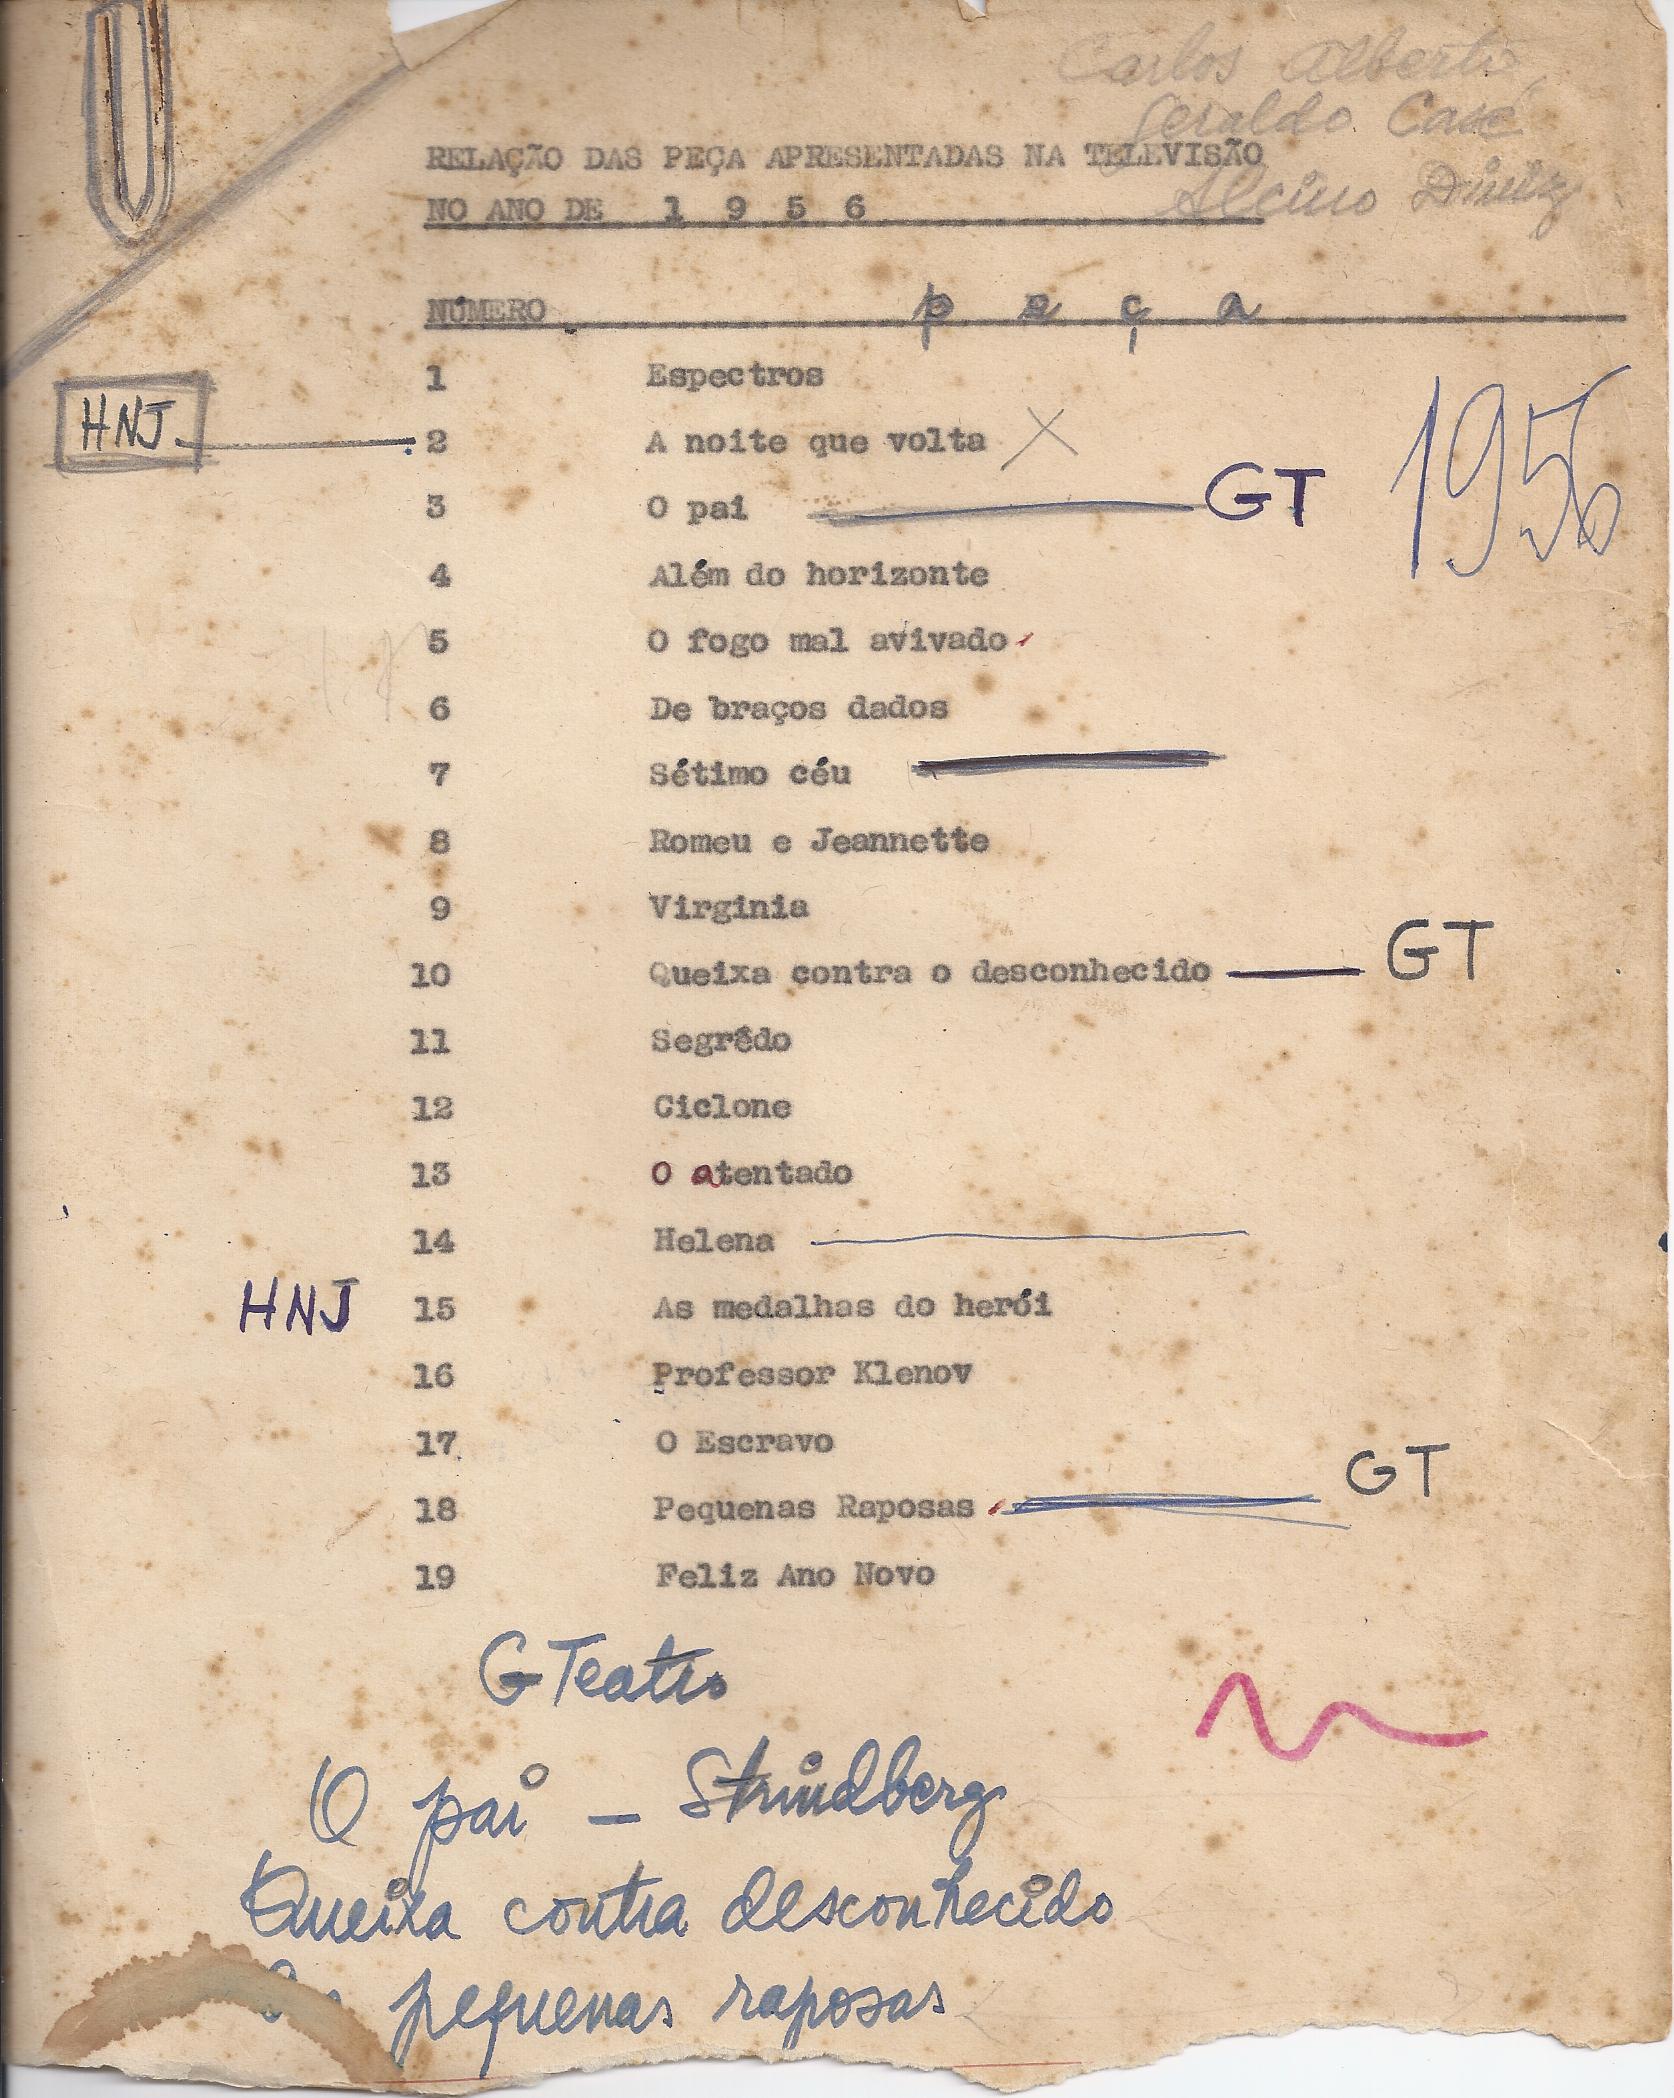 Carlos Alberto
Geraldo Casé
Alcino Diniz
RELAÇÃO DAS PEÇA APRESENTADAS NA TELEVISÃO
NO ANO DE 1 9 5 6
NÚMERO p e ç a
1 Espectros
HNJ 2 A noite que volta X
3 O pai GT
1956
4 Além do horizonte
5 O fogo mal avivado
6 De braços dados
7 Sétimo céu
8 Romeu e Jeannette
9 Virginia
10 Queixa contra o desconhecido GT
11 Segrêdo
12 Ciclone
13 O atentado
14 Helena
HNJ 15 As medalhas do herói
16 Professor Klenov
17 O Escravo
18 Pequenas Raposas GT
19 Feliz Ano Novo
G Teatro
O pai - Strindberg
Queixa contra desconhecido
pequenas raposas